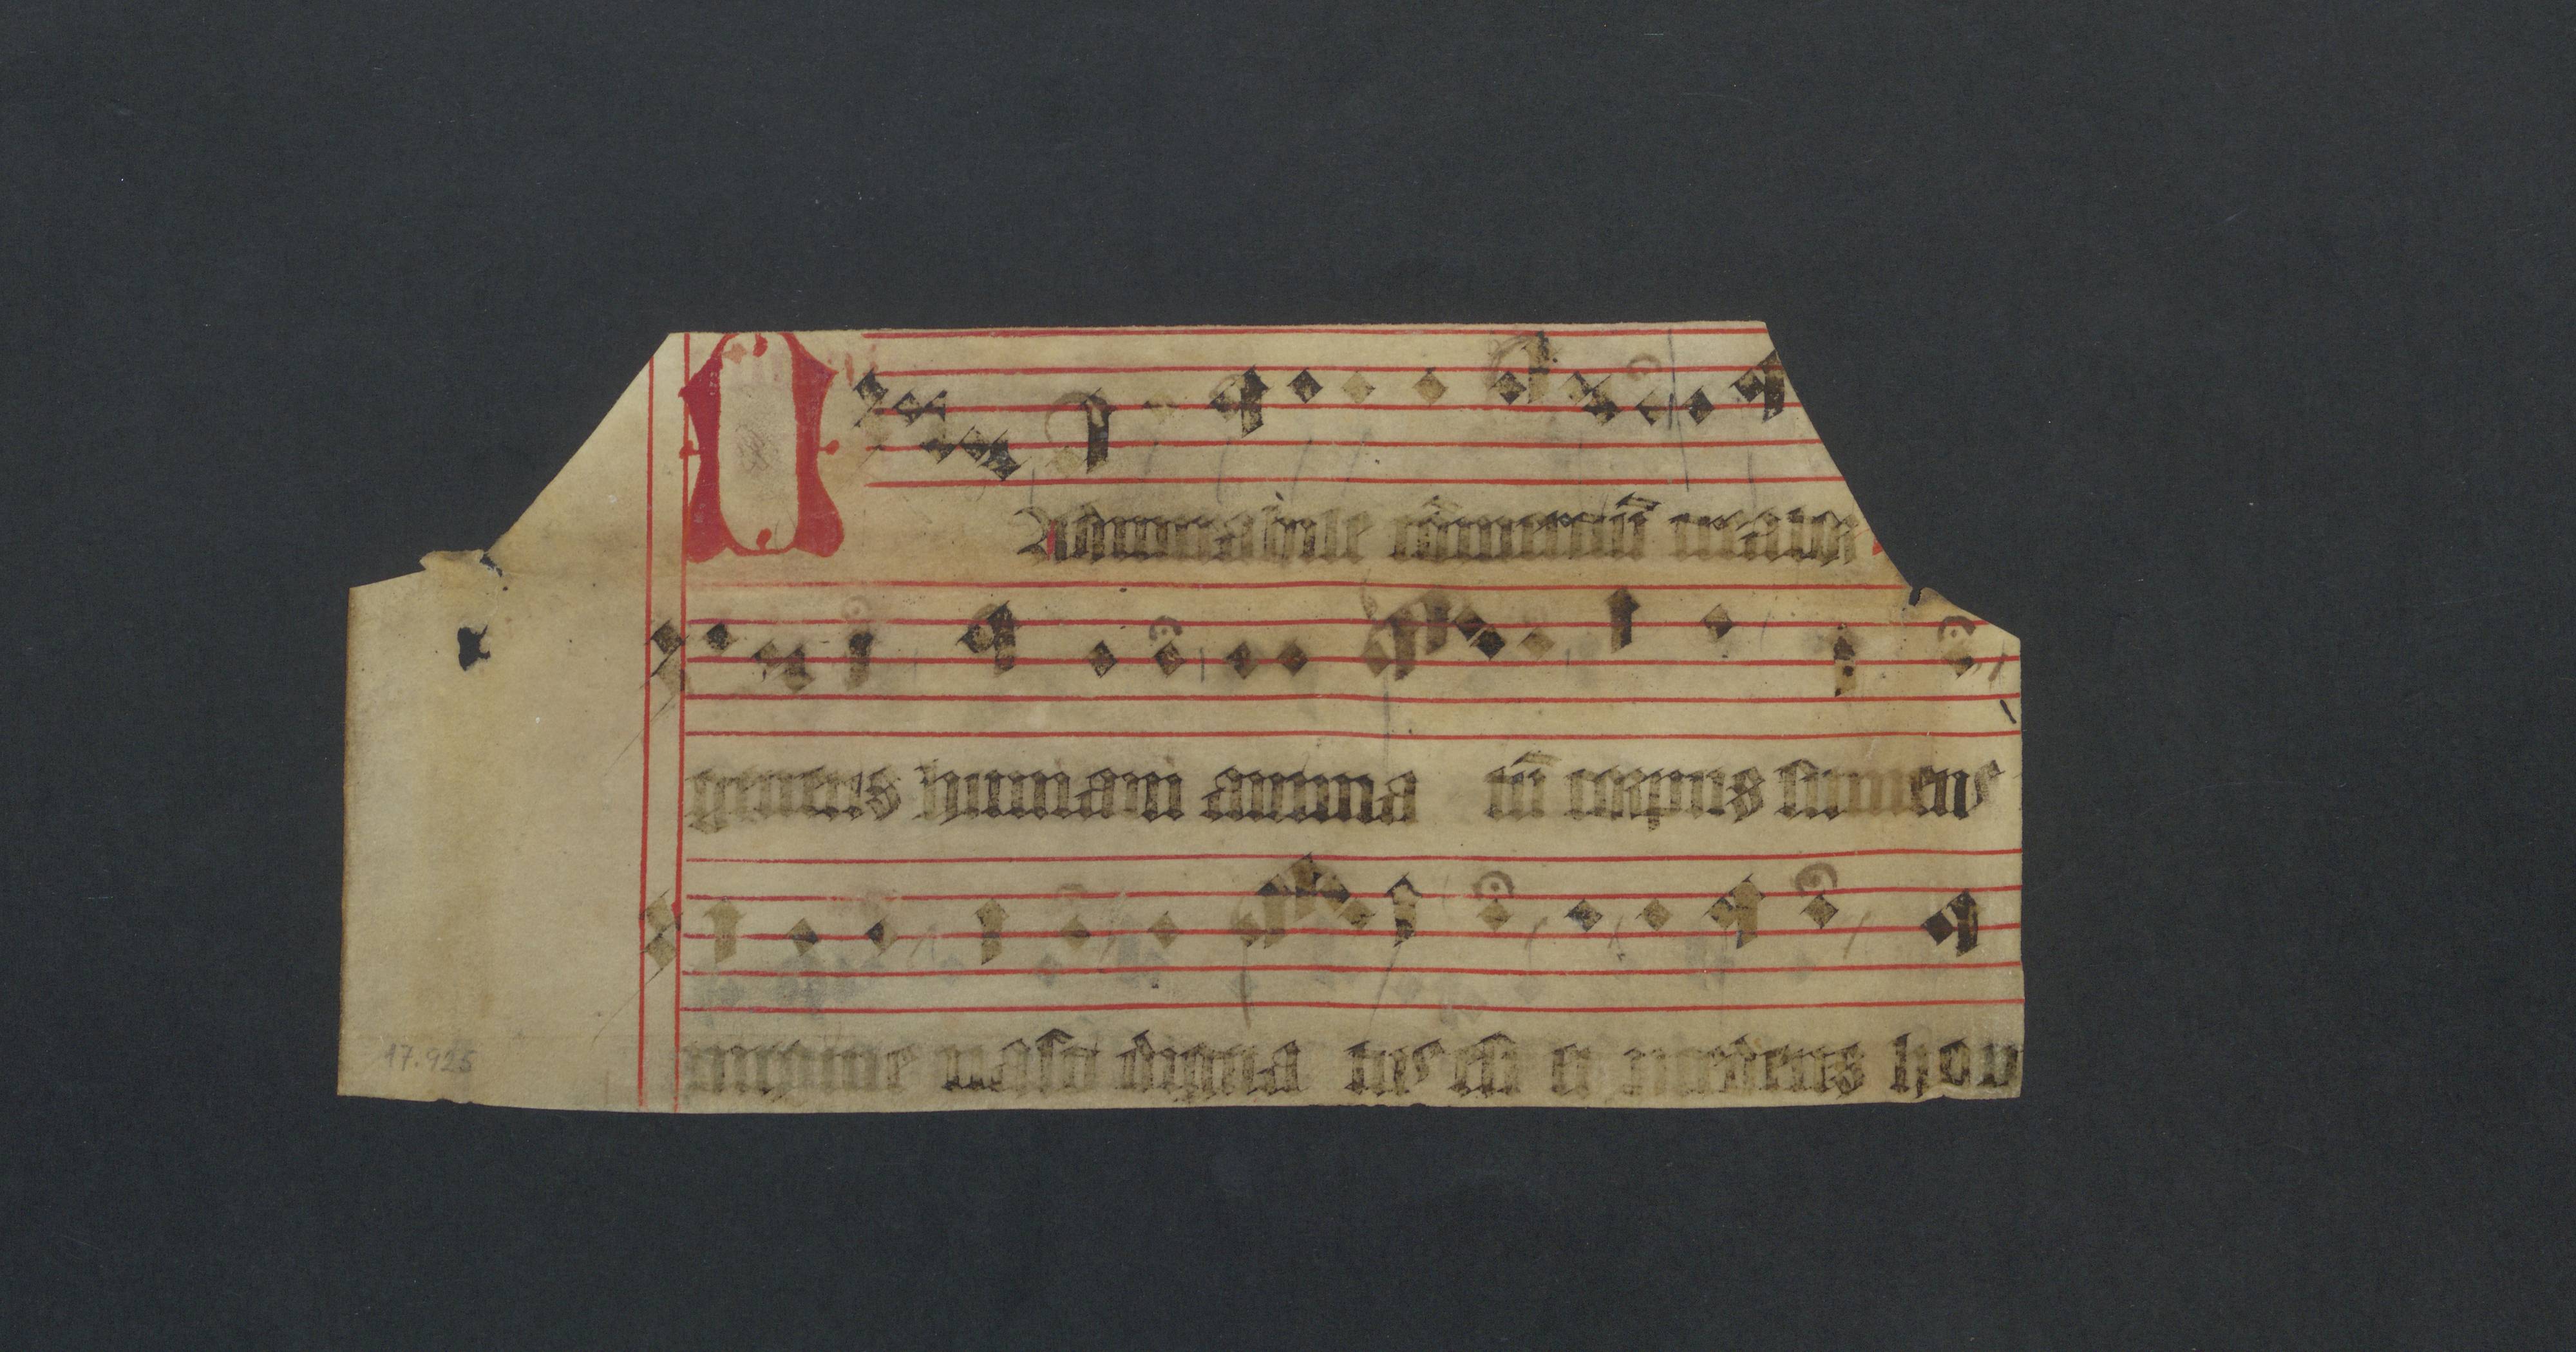 O
Admirabile cōmerciū creator
generis humani anima tū corpus sumens
virgine nasci digna tus est et procedens hom
17.925